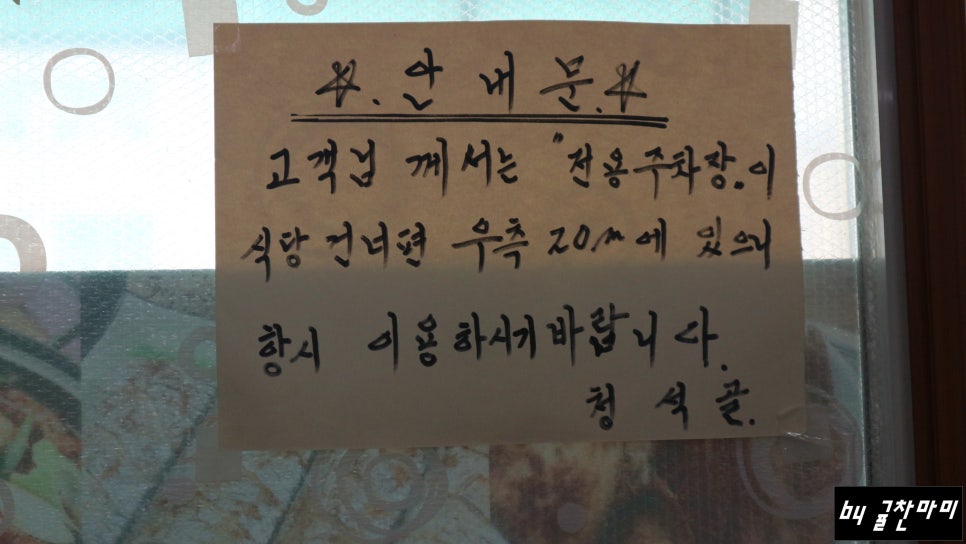 ☆.안내문.☆
고객님 께서는 "전용주차장.이
식당건너편 우측 20m에 있으니
항시 이용하시기바랍니다.
청석골.
by 굴찬마미